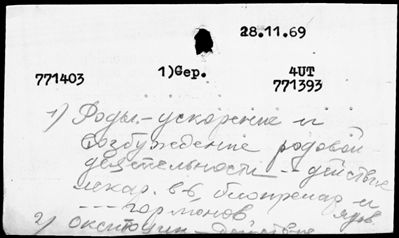 28.11.69
771403 1)Gер. 4UT
771393
1) Роды.-ускорение и
возбуждение родовой
деятельности -- действие
лекар. в-в, биопрепар. и
--- гормонов ядов
2) Окситоцин - Действие